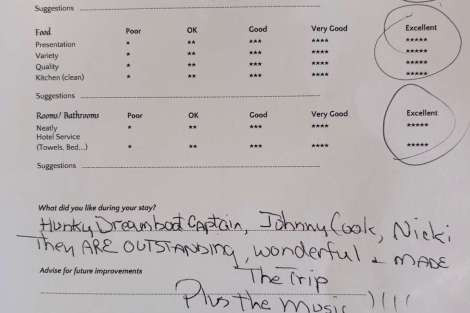 Suggestions
Food Poor OK Good Very Good Excellent
Presentation * ** *** **** *****
Variety * ** *** **** *****
Quality * ** *** **** *****
Kitchen (clean) * ** *** **** *****
Suggestions
Rooms/ Bathrooms Poor OK Good Very Good Excellent
Neatly * ** *** **** *****
Hotel Service
(Towels, Bed...) * ** *** **** *****
Suggestions
What did you like during your stay?
Hunky Dreamboat Captain, Johnny Cook, Nicki
They ARE OUTSTANDING, wonderful & MADE
Advise for future improvements
The Trip
Plus the Music )!!!